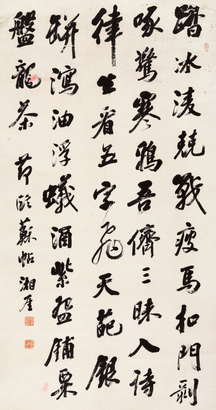 踏冰凌兢戰瘦馬扣門剝
啄驚寒鴉吾儕三昧入詩
律坐看五字飛天葩銀
缾瀉油浮蟻酒紫盌鋪粟
盤龍茶 節臨蘇帖湘